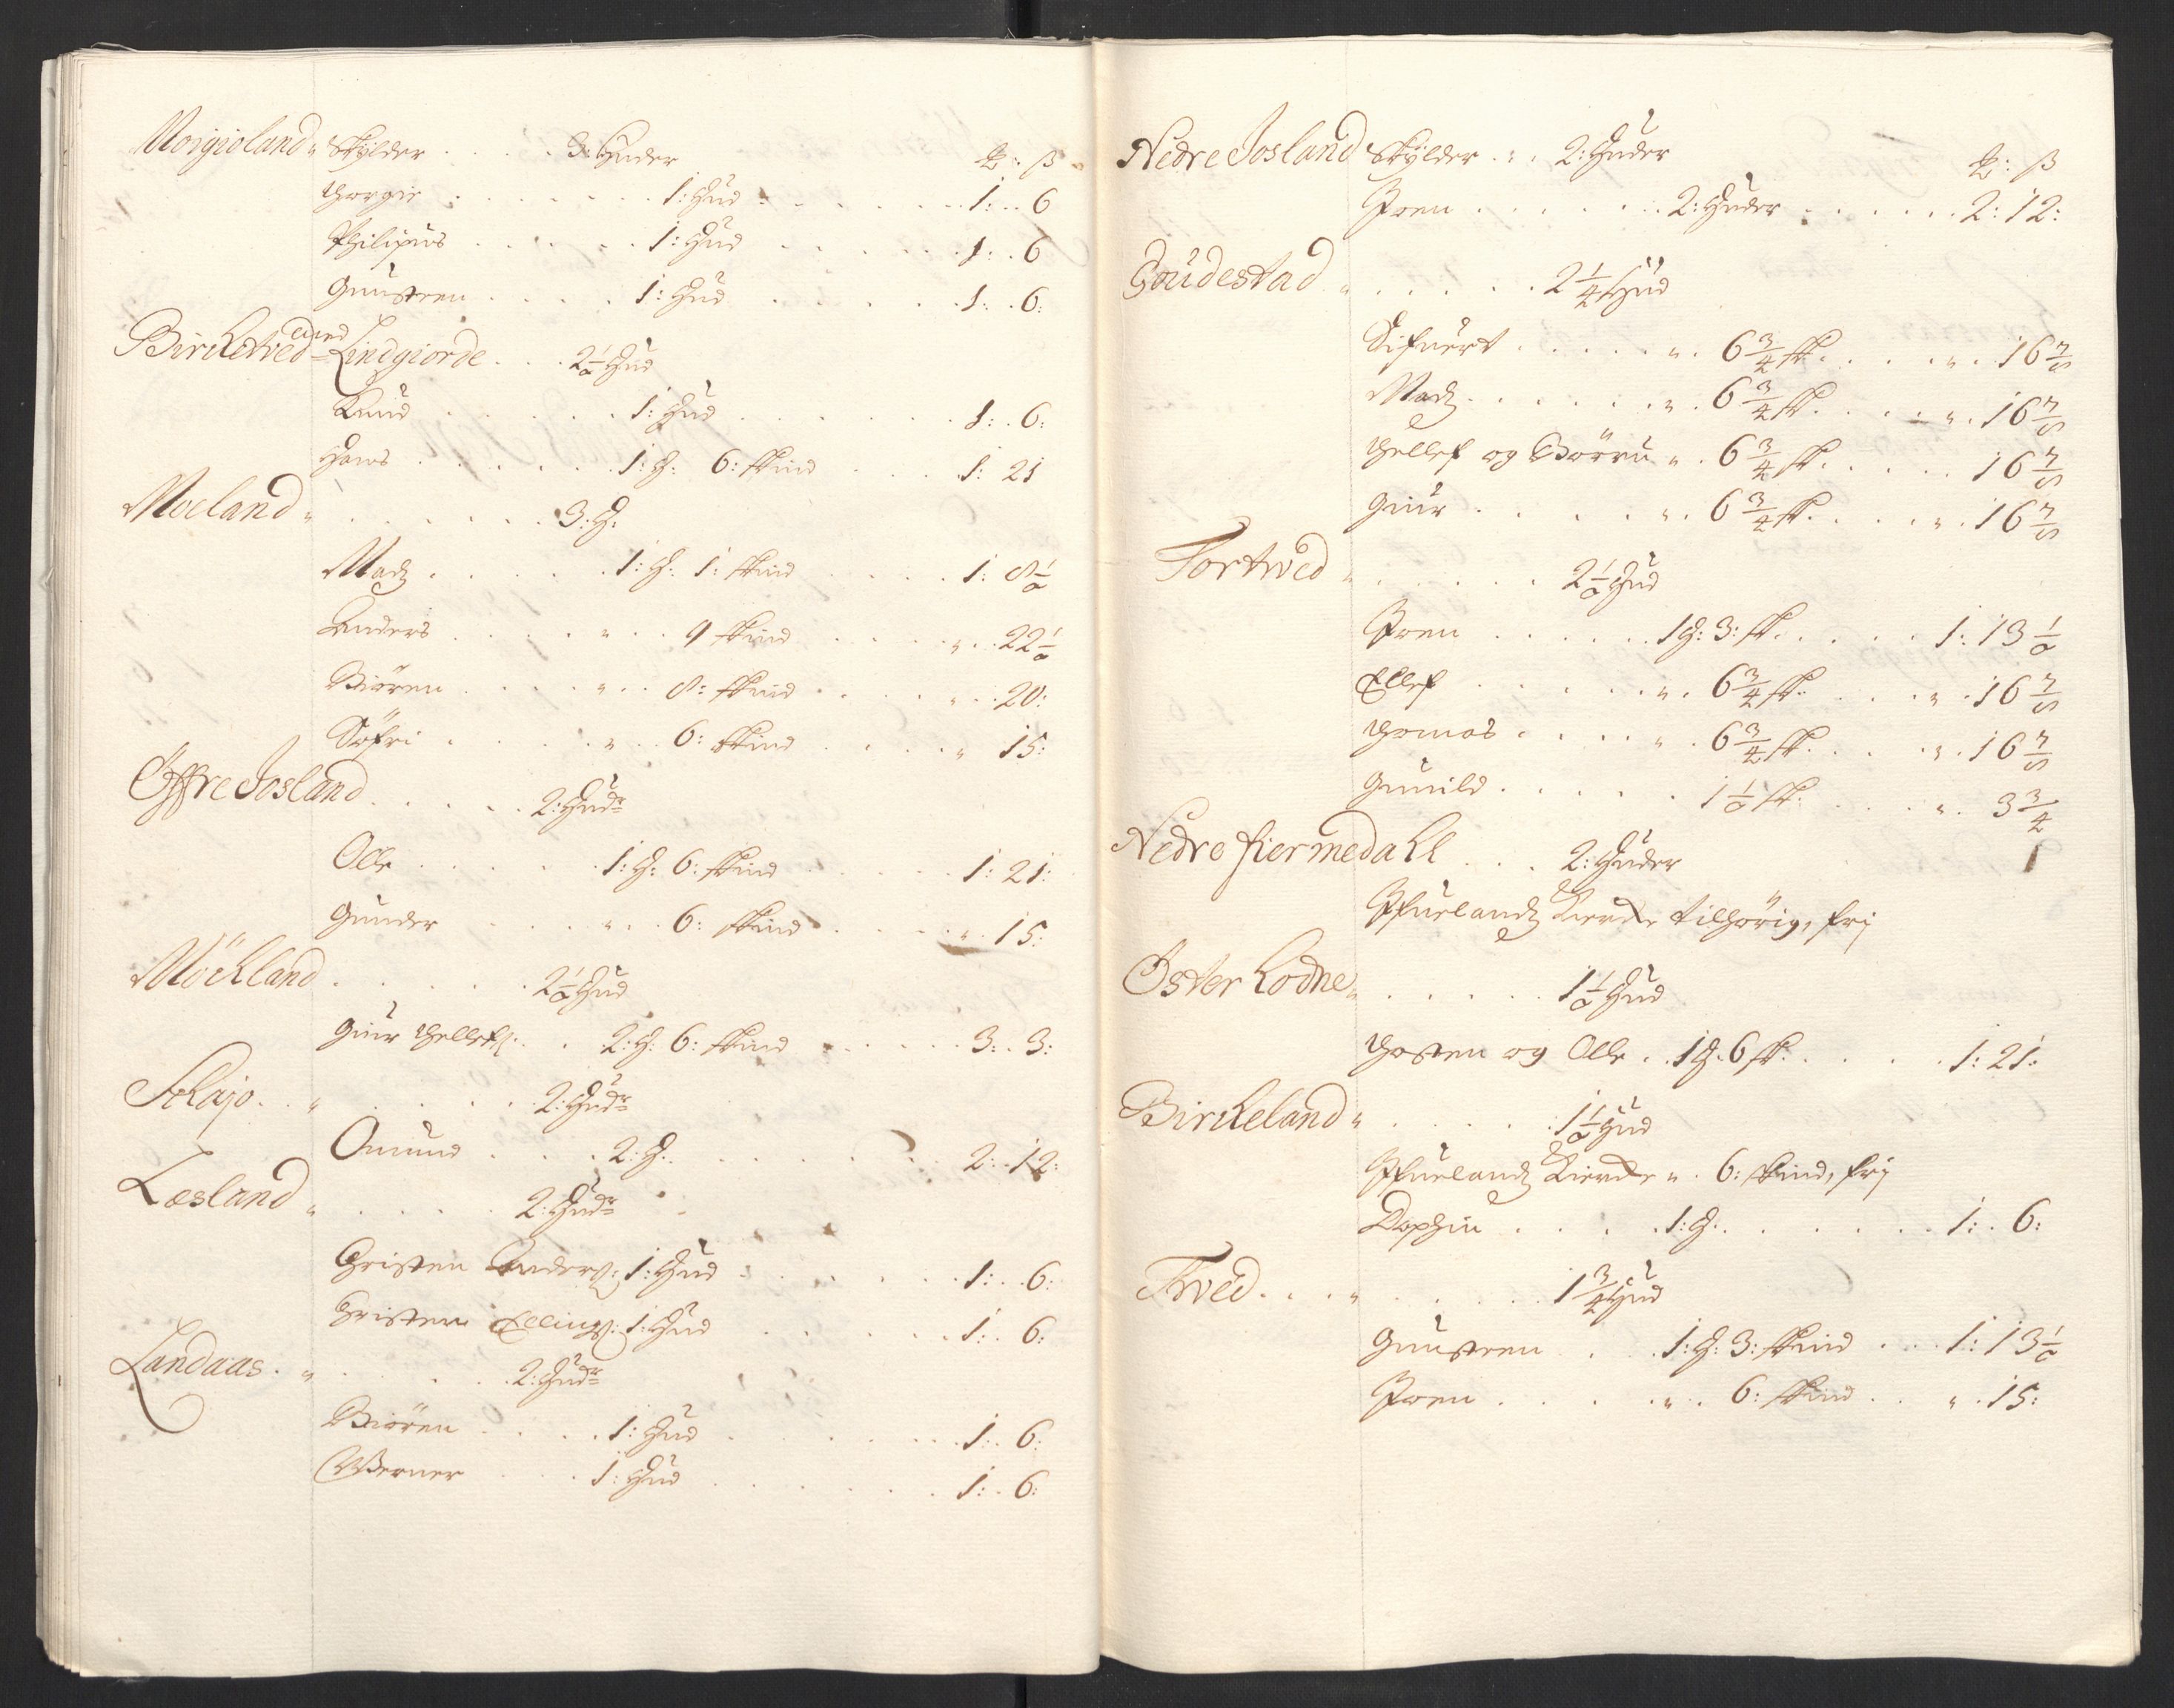 Moigioland " Skylder . . . . . 3: Huder
rd: ß
Torgie . . . . . . . 1: Hud . . . . . . . 1: . 6
Philipus . . . . . 1: Hud . . . . . . 1: . 6
Gunsteen . . . . 1: Hud . . . . . . 1: . 6:
Birchetvedt med Lindgiorde . . . 2½ Hud
Knud . . . . . . 1: Hud . . . . . . 1: . 6:
Hans . . . . . . 1: H: 6: skind . . . 1: 21
Moeland " . . . . . . . 3: H:
Madz . . . . . . 1: H: 1: skind . . . . 1: 8½
Anders . . . . " . . 9 skind . . . . " . . 22½
Biören . . . . " . . 8: skind . . . . " . . 20:
Söfri . . . . . " . . 6: skind . . . . " 15:
Öffre Josland . . . . . 2: Hudr
Olle . . . . . . 1: H: 6: skind . . . . 1: 21:
Gunder . . . . " . . 6: skind . . . . " . 15:
Möckland . . . . . . . 2½ Hud
Giur Tellefs: . . 2: H: 6: skind . . . . . . 3: . 3:
Schajo . . " . . . . . . 2: Hudr
Omund . . . . 2: H: . . . . . . . 2: . 12:
Læsland " . . . . . 2: Hudr
Christen Anders: 1: Hud . . . . . . . 1: . 6:
Christen Ellings: 1: Hud . . . . . . 1: . 6:
Landaas . " . . . . . 2: Hudr
Biören . . . . 1: Hud . . . . . . . 1: . 6:
Werner . . . 1: Hud . . . . . . . 1: . 6:
Nedre Josland Skylder . : . 2: Huder
rd: ß
Joen . . . . . . 2: Huder . . . . . . 2: 12:
Goudestad " . . . . . . 2¼ Hud
Sifuert . . . . . " . 6¾ sk. . . . . " . 16⅞
Madz . . . . . . " . 6¾ sk. . . . . " . 16⅞
Tellef og Börru " . 6¾ sk. . . . . . 16⅞
Giur . . . . . " . 6¾ sk. . . . . " . 16⅞
Tortved " . . . . . . 2½ Hud
Joen . . . . . . 1 H: 3: sk. . . . . . 1: 13½
Ellef . . . . . . " . 6¾ sk. . . . " . 16⅞
Tomas . . . . . " . 6¾ sk. . . . . " . 16⅞
Gunild . . . . . . 1½ sk. . . . . " . 3¾
Nedre fiermedahl . . . 2: Huder
Ifuelandz Kierche tilhörig, frj
Öster Kodne " . . . . . . 1½ Hud
Tosten og Olle . . 1 H. 6 sk. . . . . . 1: 21:
Birckeland " . . . . . . 1½ Hud
Ifuelandz Kierche " . 6: skind, frj
Dophin . . . . . 1: H: . . . . . . . 1: . 6:
Tved . . . " . . . . . . 1¾ Hud
Gunsteen . . 1: H: 3: skind . . . 1: 13½
Joen . . . . . " . . 6: skind . . " . 15: